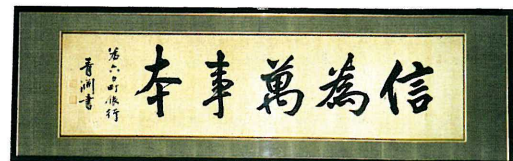 信為萬事本
為六日町銀行
青淵書